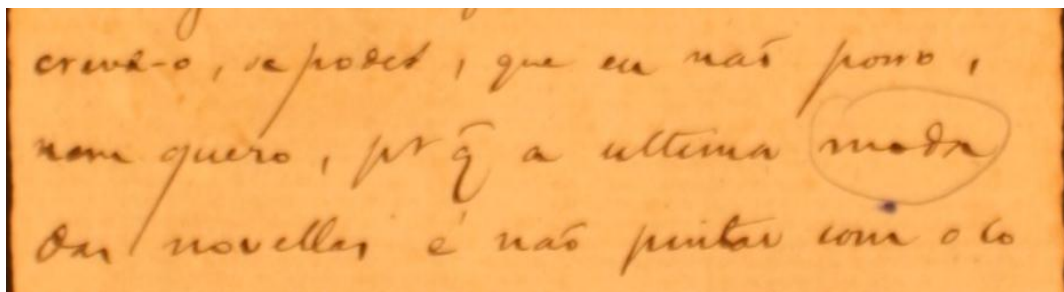 creva-o, se podes, que eu não posso,
nem quero, pr q̃ a ultima moda
das novellas é não pintar com o co